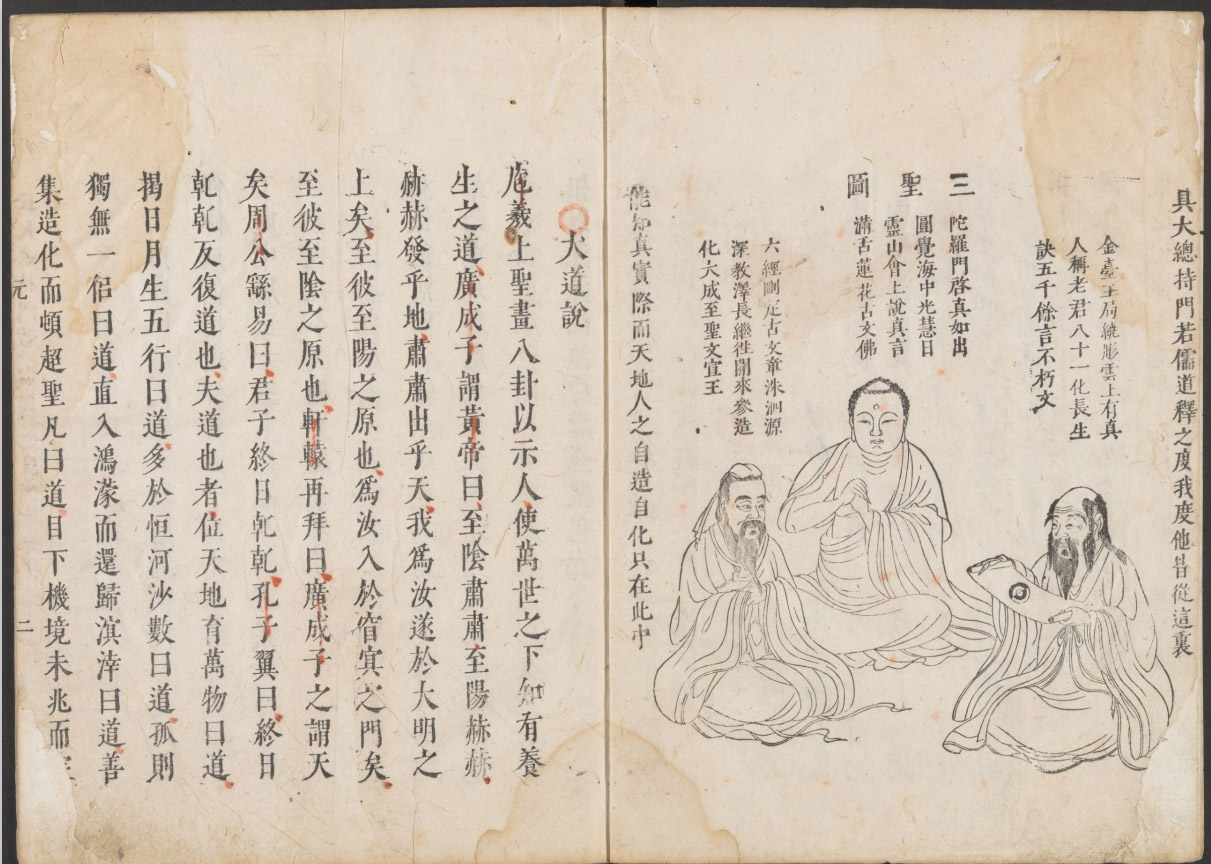 具大總持門若儒道釋之度我度他皆從這裏
金臺玉局繞彤雲上有真
人稱老君八十一化長生
訣五千餘言不朽文
三聖圖
陀羅門啓真如出
圓覺海中光慧日
靈山會上說真言
滿舌蓮花古文佛
六經刪定古文章洙泗源
深教澤長繼徃開來參造
化大成至聖文宣王
能知真實際而天地人之自造自化只在此中
大道說
庖羲上聖畫八卦以示人使萬世之下知有養
生之道廣成子謂黃帝曰至陰肅肅至陽赫赫
赫赫發乎地肅肅出乎天我爲汝遂於大明之
上矣至彼至陽之原也爲汝入於窅㝠之門矣
至彼至陰之原也軒轅再拜曰廣成子之謂天
矣周公繇易曰君子終日乾乾孔子翼曰終日
乾乾反復道也夫道也者位天地育萬物曰道
揭日月生五行曰道多於恒河沙數曰道孤則
獨無一侣曰道直入鴻濛而還歸溟涬曰道善
集造化而頓超聖凡曰道目下機境未兆而
元 二